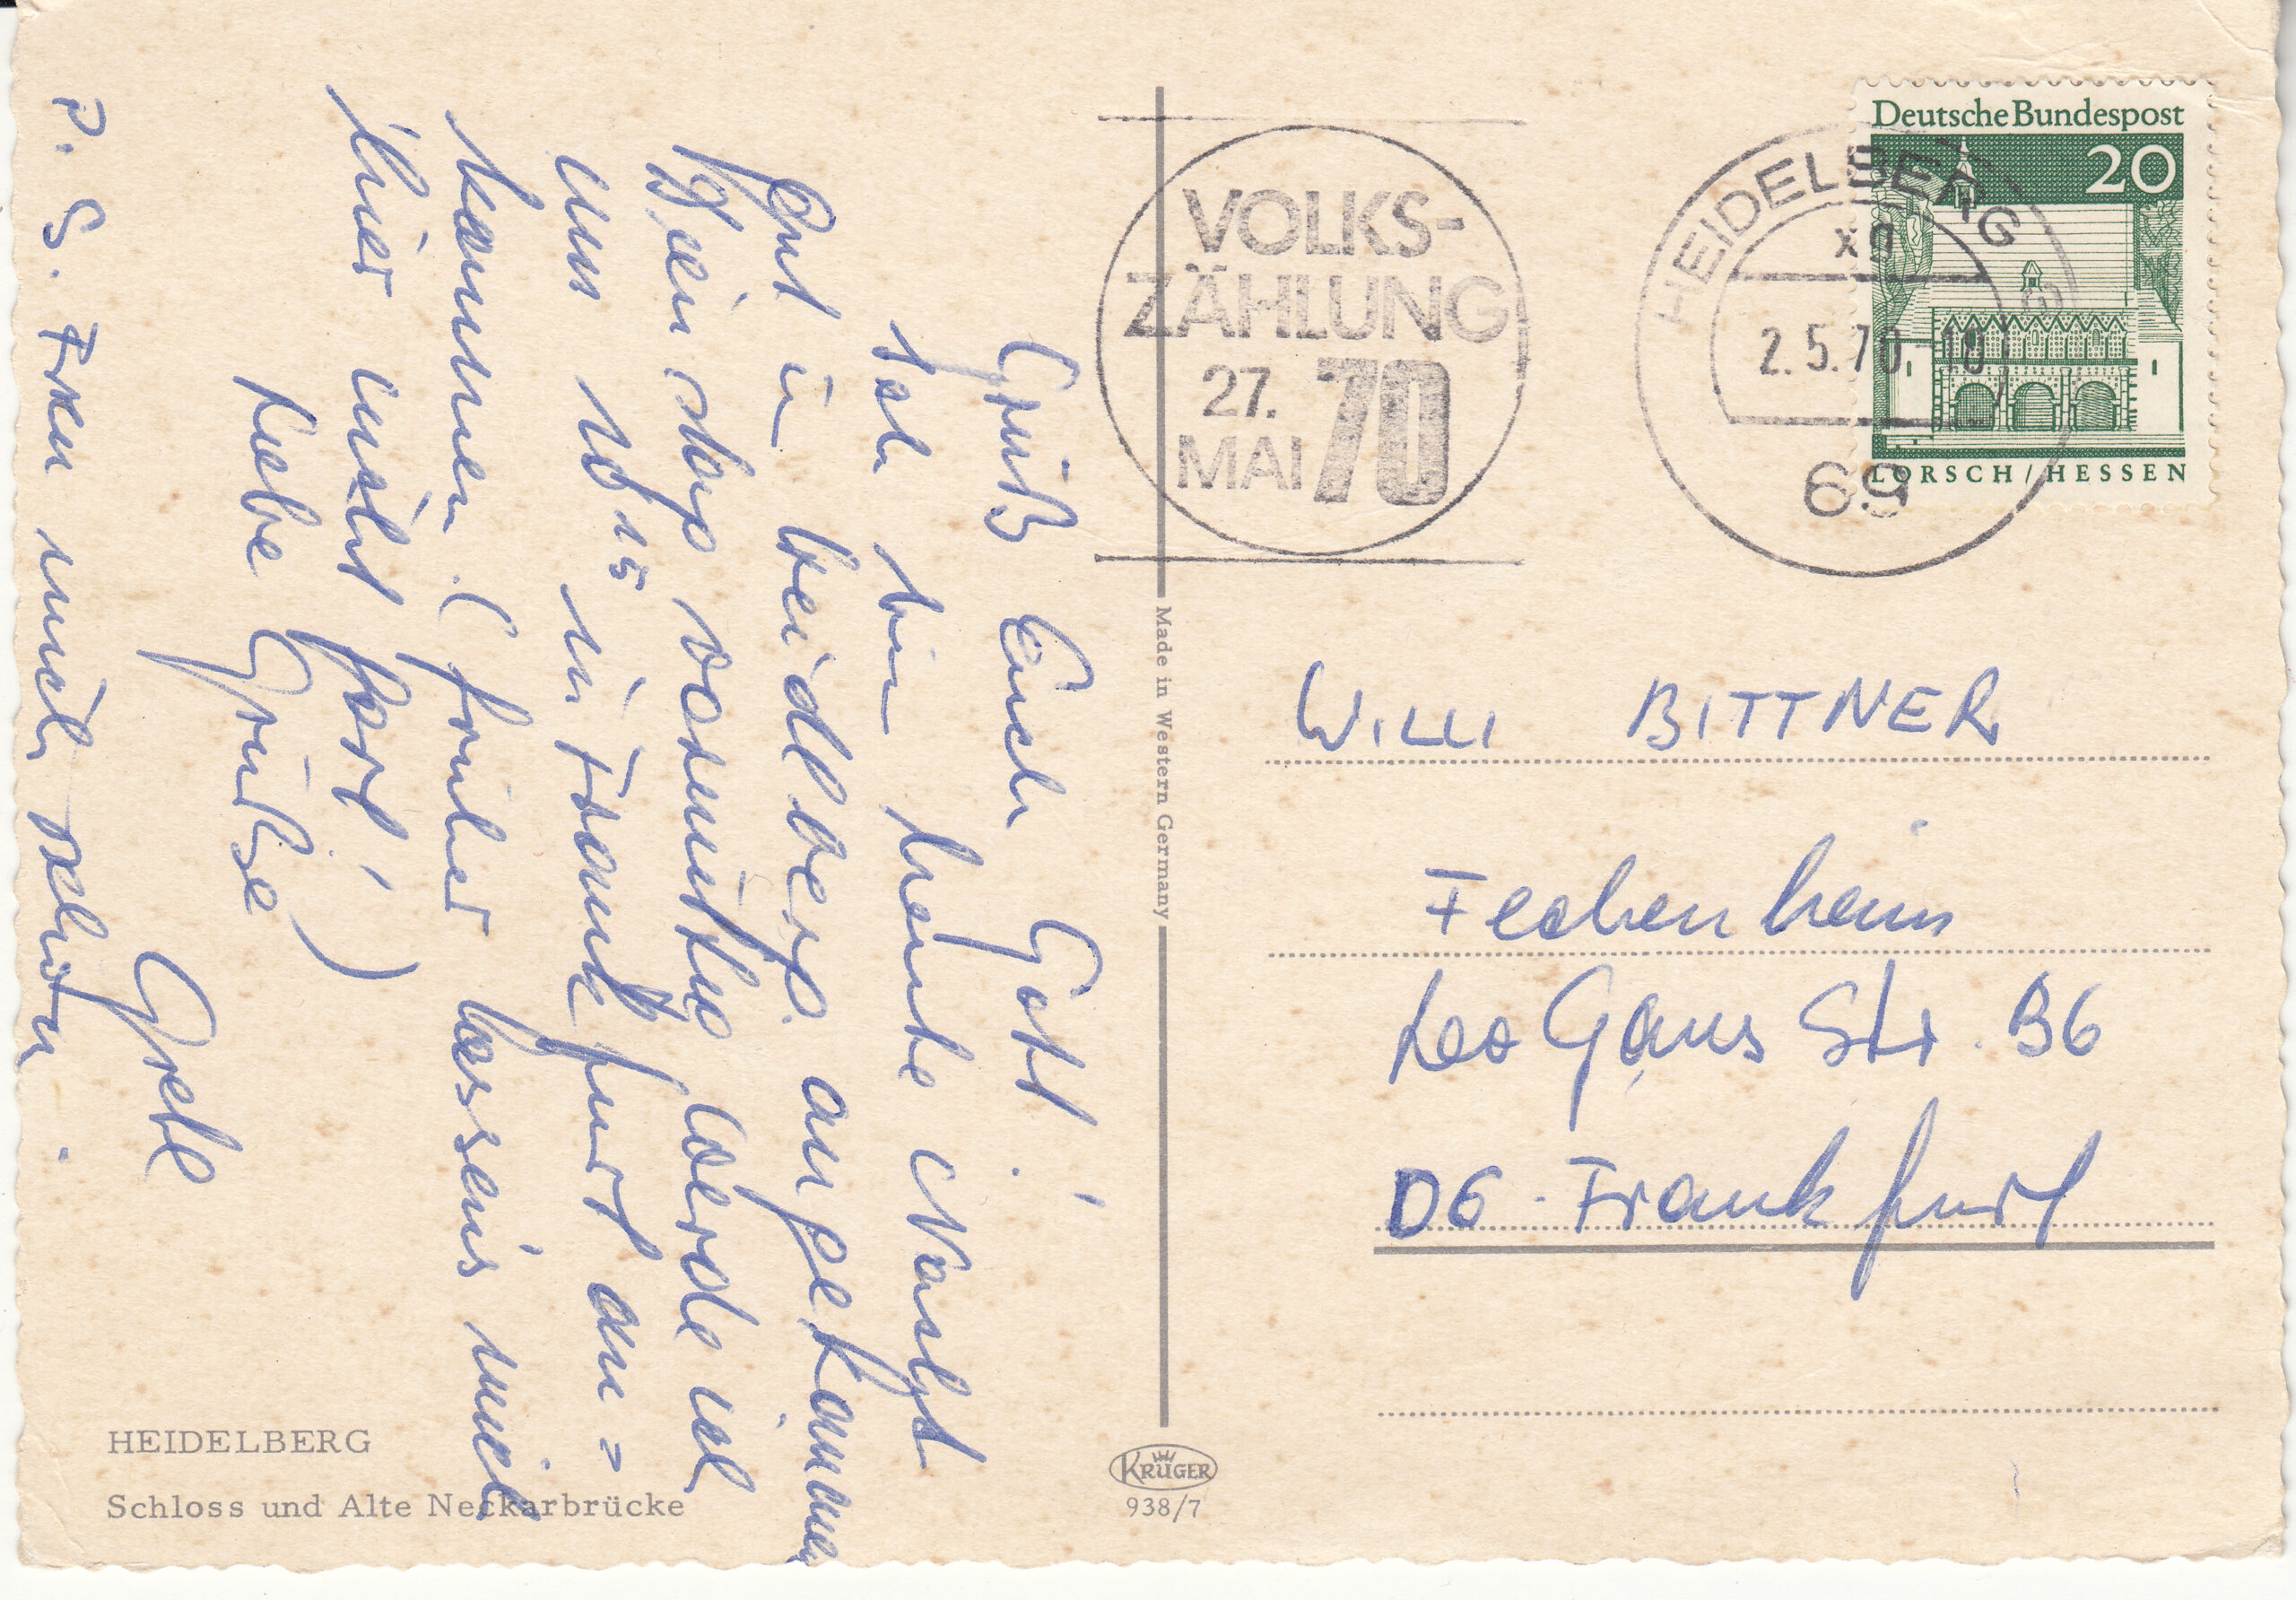 Grüß Euch Gott!
Ich bin heute Nacht
gut in Heidlberg angekommen
Dienstag vormittag werde ich
um 10 15 in Frankfurt an=
kommen. (früher lassens mich
hier nicht fort!)
Liebe Grüße
Gretl
P.S. Freu mich schon.
VOLKS-
ZÄHLUNG
27.
MAI 70
HEIDELBERG
2.5.70 10
69
Deutsche Bundespost
20
LORSCH/HESSEN
WILLI BITTNER
Fechenheim
Leo Gans Str. 36
D6 Frankfurt
Made in Western Germany
HEIDELBERG
Schloss und Alte Neckarbrücke
KRÜGER
938/7